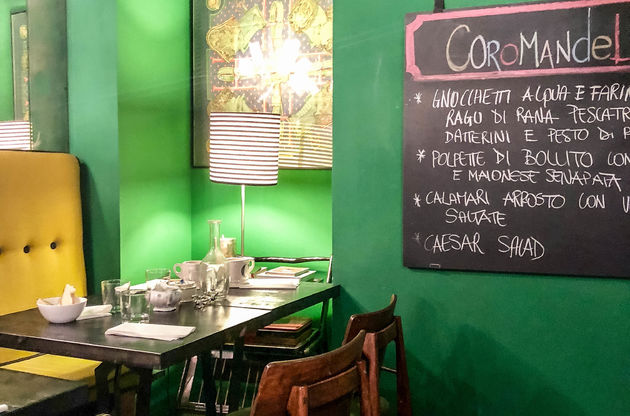 COROMANDEL
* GNOCCHETTI ACQUA E FARIN
RAGU DI RANA PESCATR
DATTERINI E PESTO DI
* POLPETTE DI BOLLITO CON
E MAIONESE SENAPATA
* CALAMARI ARROSTO CON
SALTATE
* CAESAR SALAD